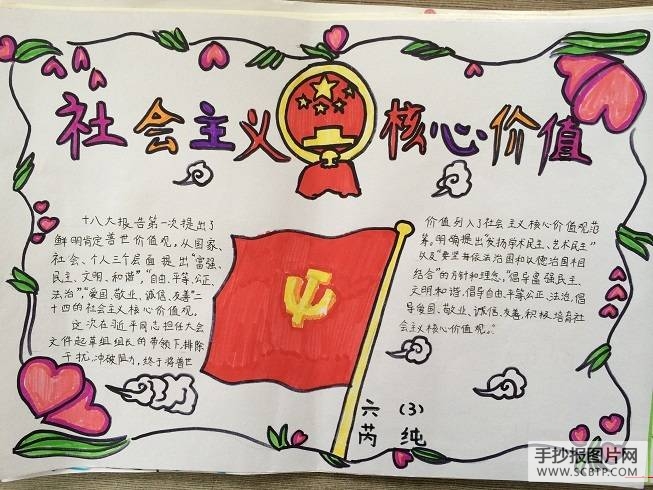 社会主义核心价值
十八大报告第一次提出了
鲜明肯定普世价值观，从国家
社会、个人三个层面提出“富强、
民主、文明、和谐”，“自由、平等、公正、
法治”，“爱国、敬业、诚信、友善”二
十四的社会主义核心价值观，
这次在近平同志担任大会
文件起草组组长的带领下，排除
干扰，冲破阻力，终于将普世
价值列入了社会主义核心价值观范
筹。明确提出“发扬学术民主、艺术民主”
以及“要坚持依法治国和以德治国相
结合”的方针和理念，“倡导富强民主、
文明和谐，倡导自由、平等公正、法治，倡
导爱国、敬业、诚信、友善，积极培育社
会主义核心价值观。”
六（3）
芮纯
手抄报图片网
WWW.SCBTP.COM